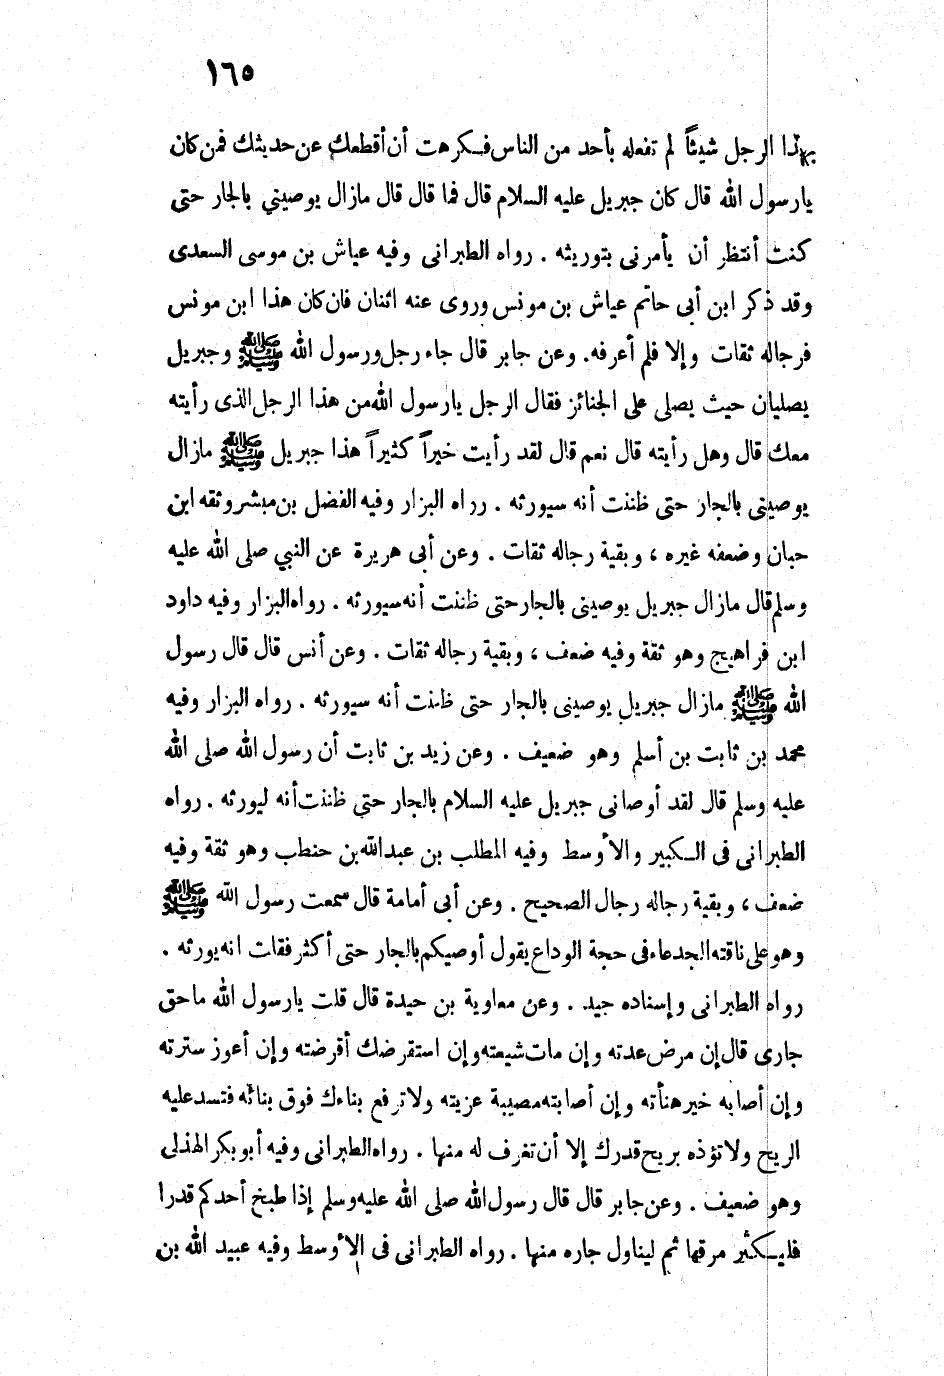 ١٦٥
بهذا الرجل شيئاً لم تفعله بأحد من الناس فكرهت أن أقطعك عن حديثك فمن كان
يارسول الله قال كان جبريل عليه السلام قال فما قال قال مازال يوصيني بالجار حتى
كنت أنتظر أن يأمرنى بتوريثه . رواه الطبرانى وفيه عياش بن موسى السعدى
وقد ذكر ابن أبى حاتم عياش بن مونس وروى عنه اثنان فان كان هذا ابن مونس
فرجاله ثقات وإلا فلم أعرفه. وعن جابر قال جاء رجل ورسول الله ﷺ وجبريل
يصليان حيث يصلى على الجنائز فقال الرجل يارسول الله من هذا الرجل الذى رأيته
معك قال وهل رأيته قال نعم قال لقد رأيت خيراً كثيراً هذا جبريل ﷺ مازال
يوصينى بالجار حتى ظننت أنه سيورثه . رواه البزار وفيه الفضل بن مبشر وثقه ابن
حبان وضعفه غيره ، وبقية رجاله ثقات . وعن أبى هريرة عن النبي صلى الله عليه
وسلم قال مازال جبريل يوصينى بالجار حتى ظننت أنه سيورثه . رواه البزار وفيه داود
ابن فراهيج وهو ثقة وفيه ضعف ، وبقية رجاله ثقات . وعن أنس قال قال رسول
الله ﷺ مازال جبريل يوصينى بالجار حتى ظننت أنه سيورثه . رواه البزار وفيه
محمد بن ثابت بن أسلم وهو ضعيف . وعن زيد بن ثابت أن رسول الله صلى الله
عليه وسلم قال لقد أوصانى جبريل عليه السلام بالجار حتى ظننت أنه ليورثه . رواه
الطبرانى فى الكبير والأوسط وفيه المطلب بن عبدالله بن حنطب وهو ثقة وفيه
ضعف ، وبقية رجاله رجال الصحيح . وعن أبى أمامة قال سمعت رسول الله ﷺ
وهو على ناقته الجدعاء فى حجة الوداع يقول أوصيكم بالجار حتى أكثر فقلت انه يورثه .
رواه الطبرانى وإسناده جيد . وعن معاوية بن حيدة قال قلت يارسول الله ماحق
جارى قال إن مرض عدته وإن مات شيعته وإن استقرضك أقرضته وإن أعوز سترته
وإن أصابه خير هنأته وإن أصابته مصيبة عزيته ولا ترفع بناءك فوق بنائه فتسد عليه
الريح ولا تؤذه بريح قدرك إلا أن تغرف له منها . رواه الطبرانى وفيه أبو بكر الهذلى
وهو ضعيف . وعن جابر قال قال رسول الله صلى الله عليه وسلم إذا طبخ أحدكم قدرا
فليكثر مرقها ثم ليناول جاره منها . رواه الطبرانى فى الأوسط وفيه عبيد الله بن